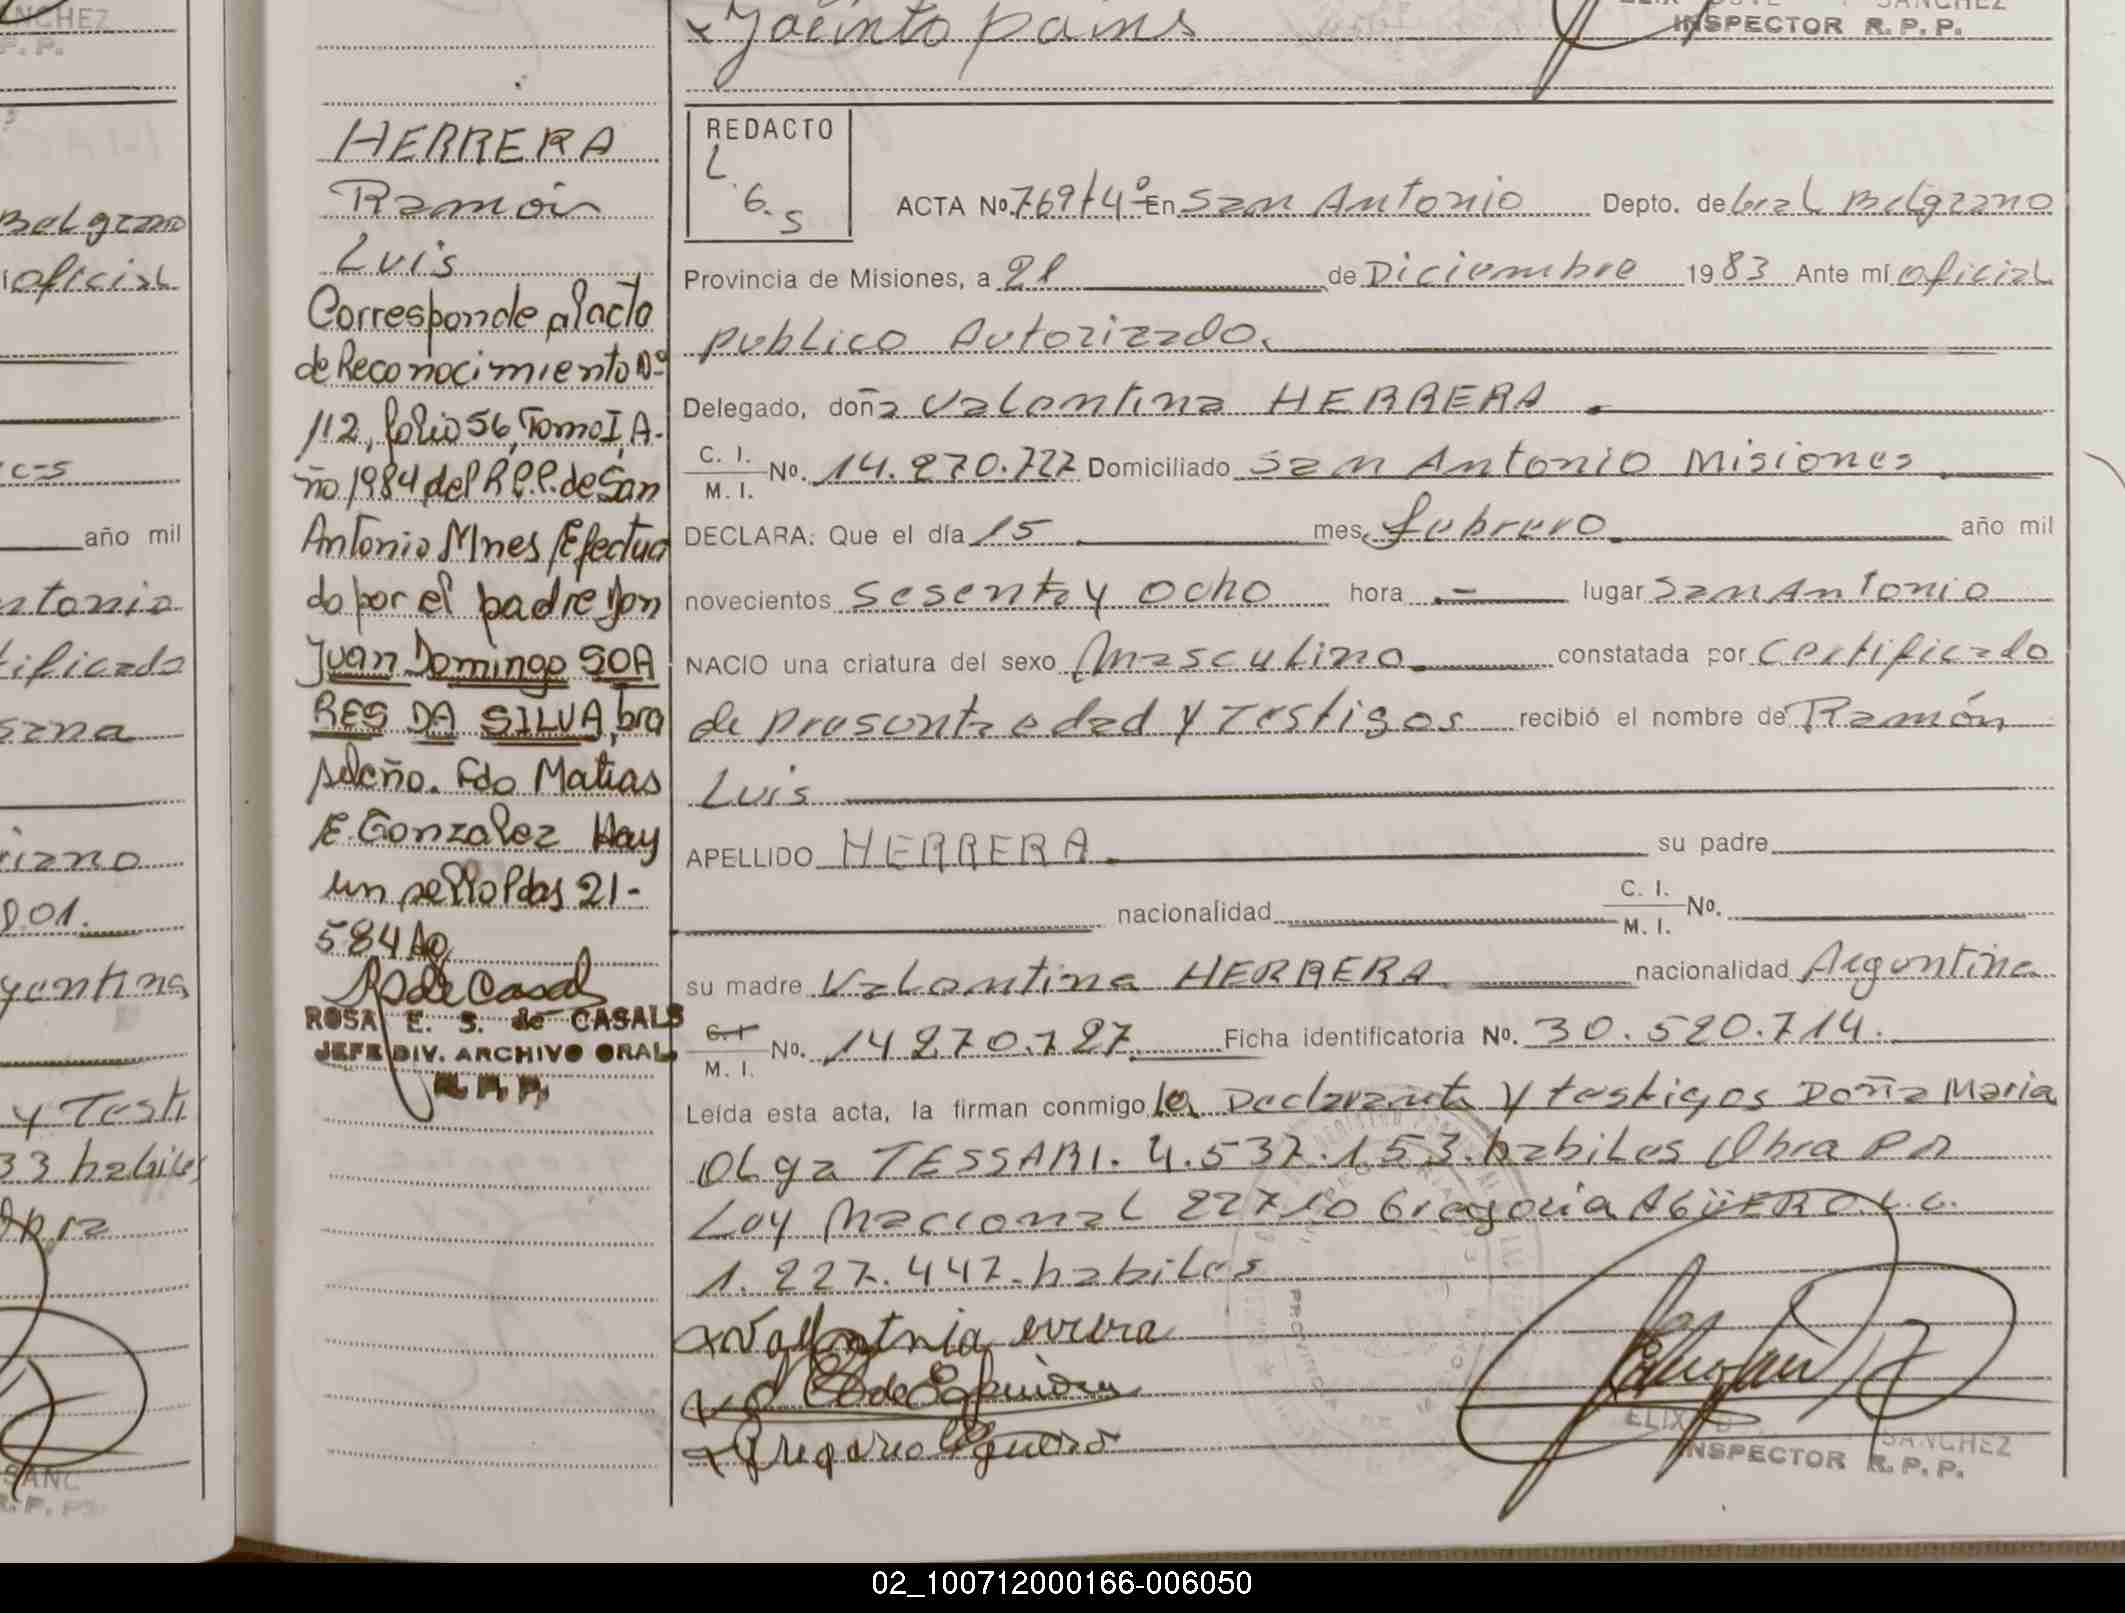 NCHEZ
P. P.
Belgrano
oficial
c-s
año mil
ntonio
tificado
sana
riano
901.
gentina
y Testi
33 habiles
SANC
R. P. P.
Jacinto pains
SANCHEZ
INSPECTOR R. P. P.
HERRERA
Ramón
Luis
Corresponde al acta
de Reconocimiento Nº
112, folio 56, Tomo I, A-
ño 1984 del R.P.P. de San
Antonio Mnes Efectua
do por el padre don
Juan Domingo SOA
RES DA SILVA, bra
sileño. Fdo Matias
E. Gonzalez Hay
un sello Pdas 21-
584
RS de Casals
ROSA E. S. de CASALS
JEFE DIV. ARCHIVO GRAL
R. P. P.
REDACTO
L
G.
S
ACTA Nº. 769 T 4º En San Antonio Depto. de Gral Belgrano
Provincia de Misiones, a 21 de Diciembre 1983 Ante mí oficial
publico Autorizado.
Delegado, doña Valentina HERRERA.
C. I.
M. I. Nº. 14.270.727 Domiciliado San Antonio Misiones.
DECLARA: Que el día 15 mes febrero año mil
novecientos sesenta y ocho hora .- lugar San Antonio
NACIO una criatura del sexo Masculino. constatada por Certificado
de presunta edad y Testigos recibió el nombre de Ramón
Luis
APELLIDO HERRERA. su padre
nacionalidad C. I.
M. I. Nº.
su madre Valentina HERRERA nacionalidad Argentina
C. I
M. I. Nº. 14 270.727. Ficha identificatoria Nº. 30.520.714.
Leída esta acta, la firman conmigo la Declarante y testigos Doña Maria
Olga TESSARI. 4.537.153. habiles Obra Pn
Ley Nacional 22710 Gregoria AGÜERO L. C.
1.227.447. habiles
x Valentnia errera
x Gregoria Aguero
SANCHEZ
INSPECTOR R. P. P.
02_100712000166-006050